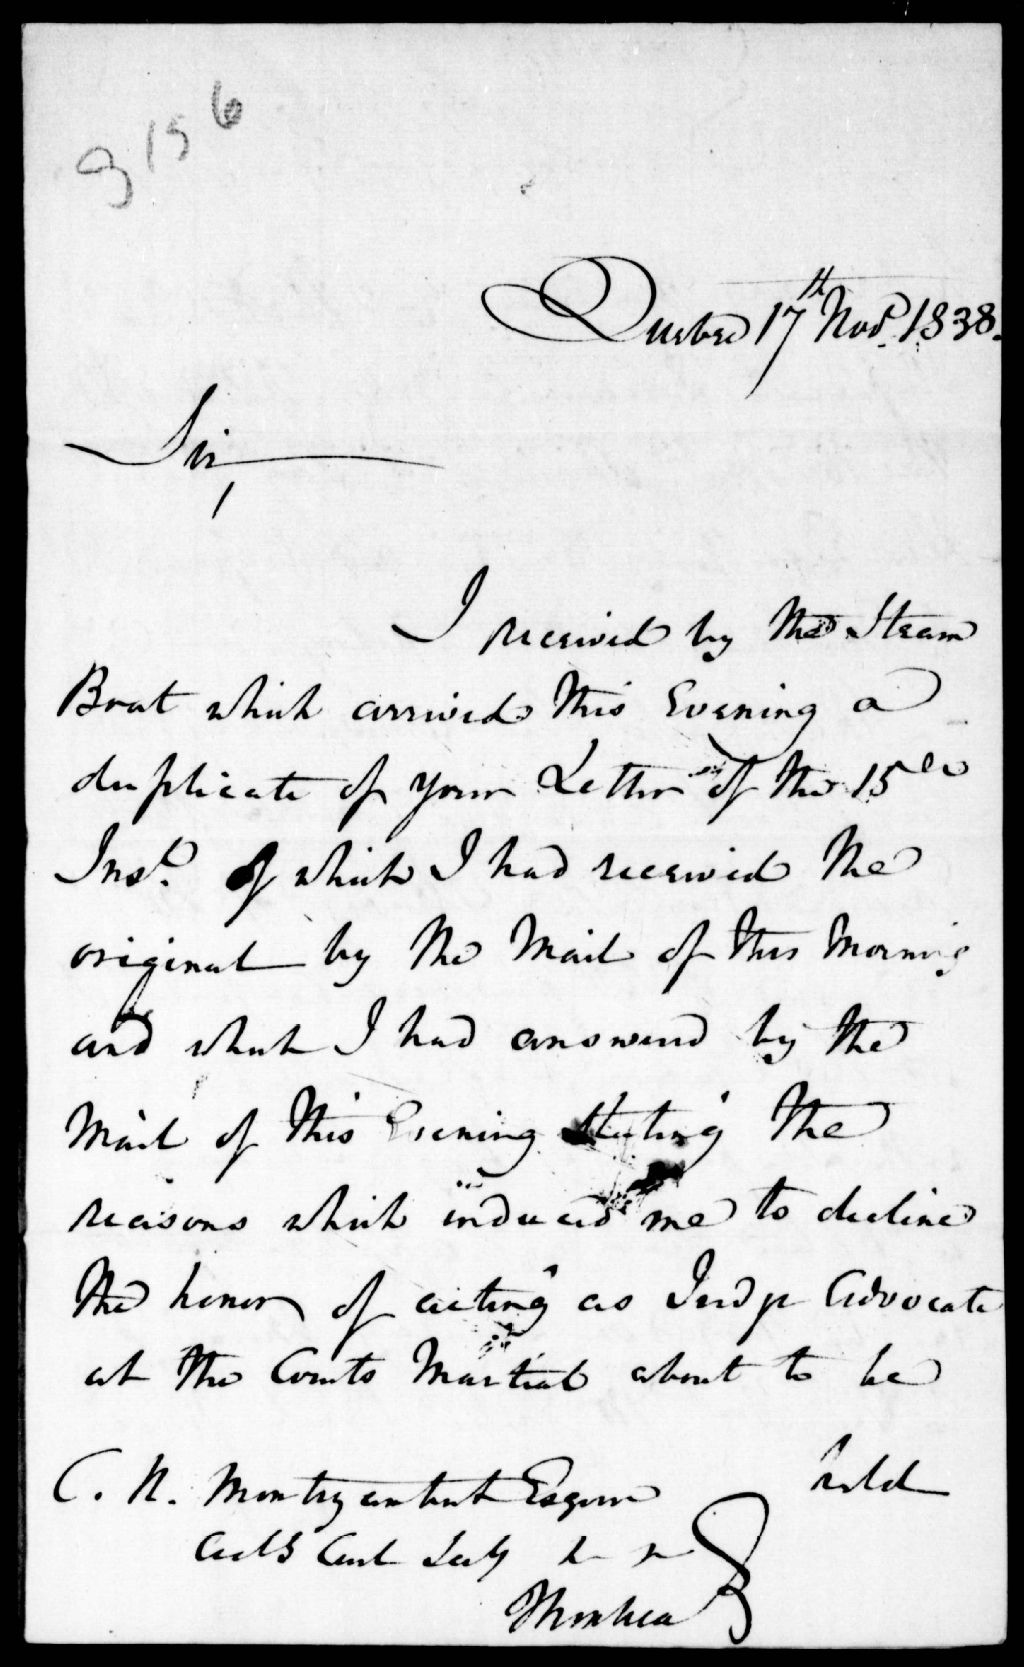 9156
Quebec 17th Novr. 1838.
Sir,
I received by the Steam
Boat which arrived this Evening a
duplicate of your Letter of the 15th
Inst. of which I had received the
original by the Mail of this Morning
and which I had answered by the
Mail of this Evening stating the
reasons which induced me to decline
the honor of acting as Judge Advocate
at the Courts Martial about to be
held
C. R. Montizambert Esquire
Actg Civil Secy &c &c
Montreal